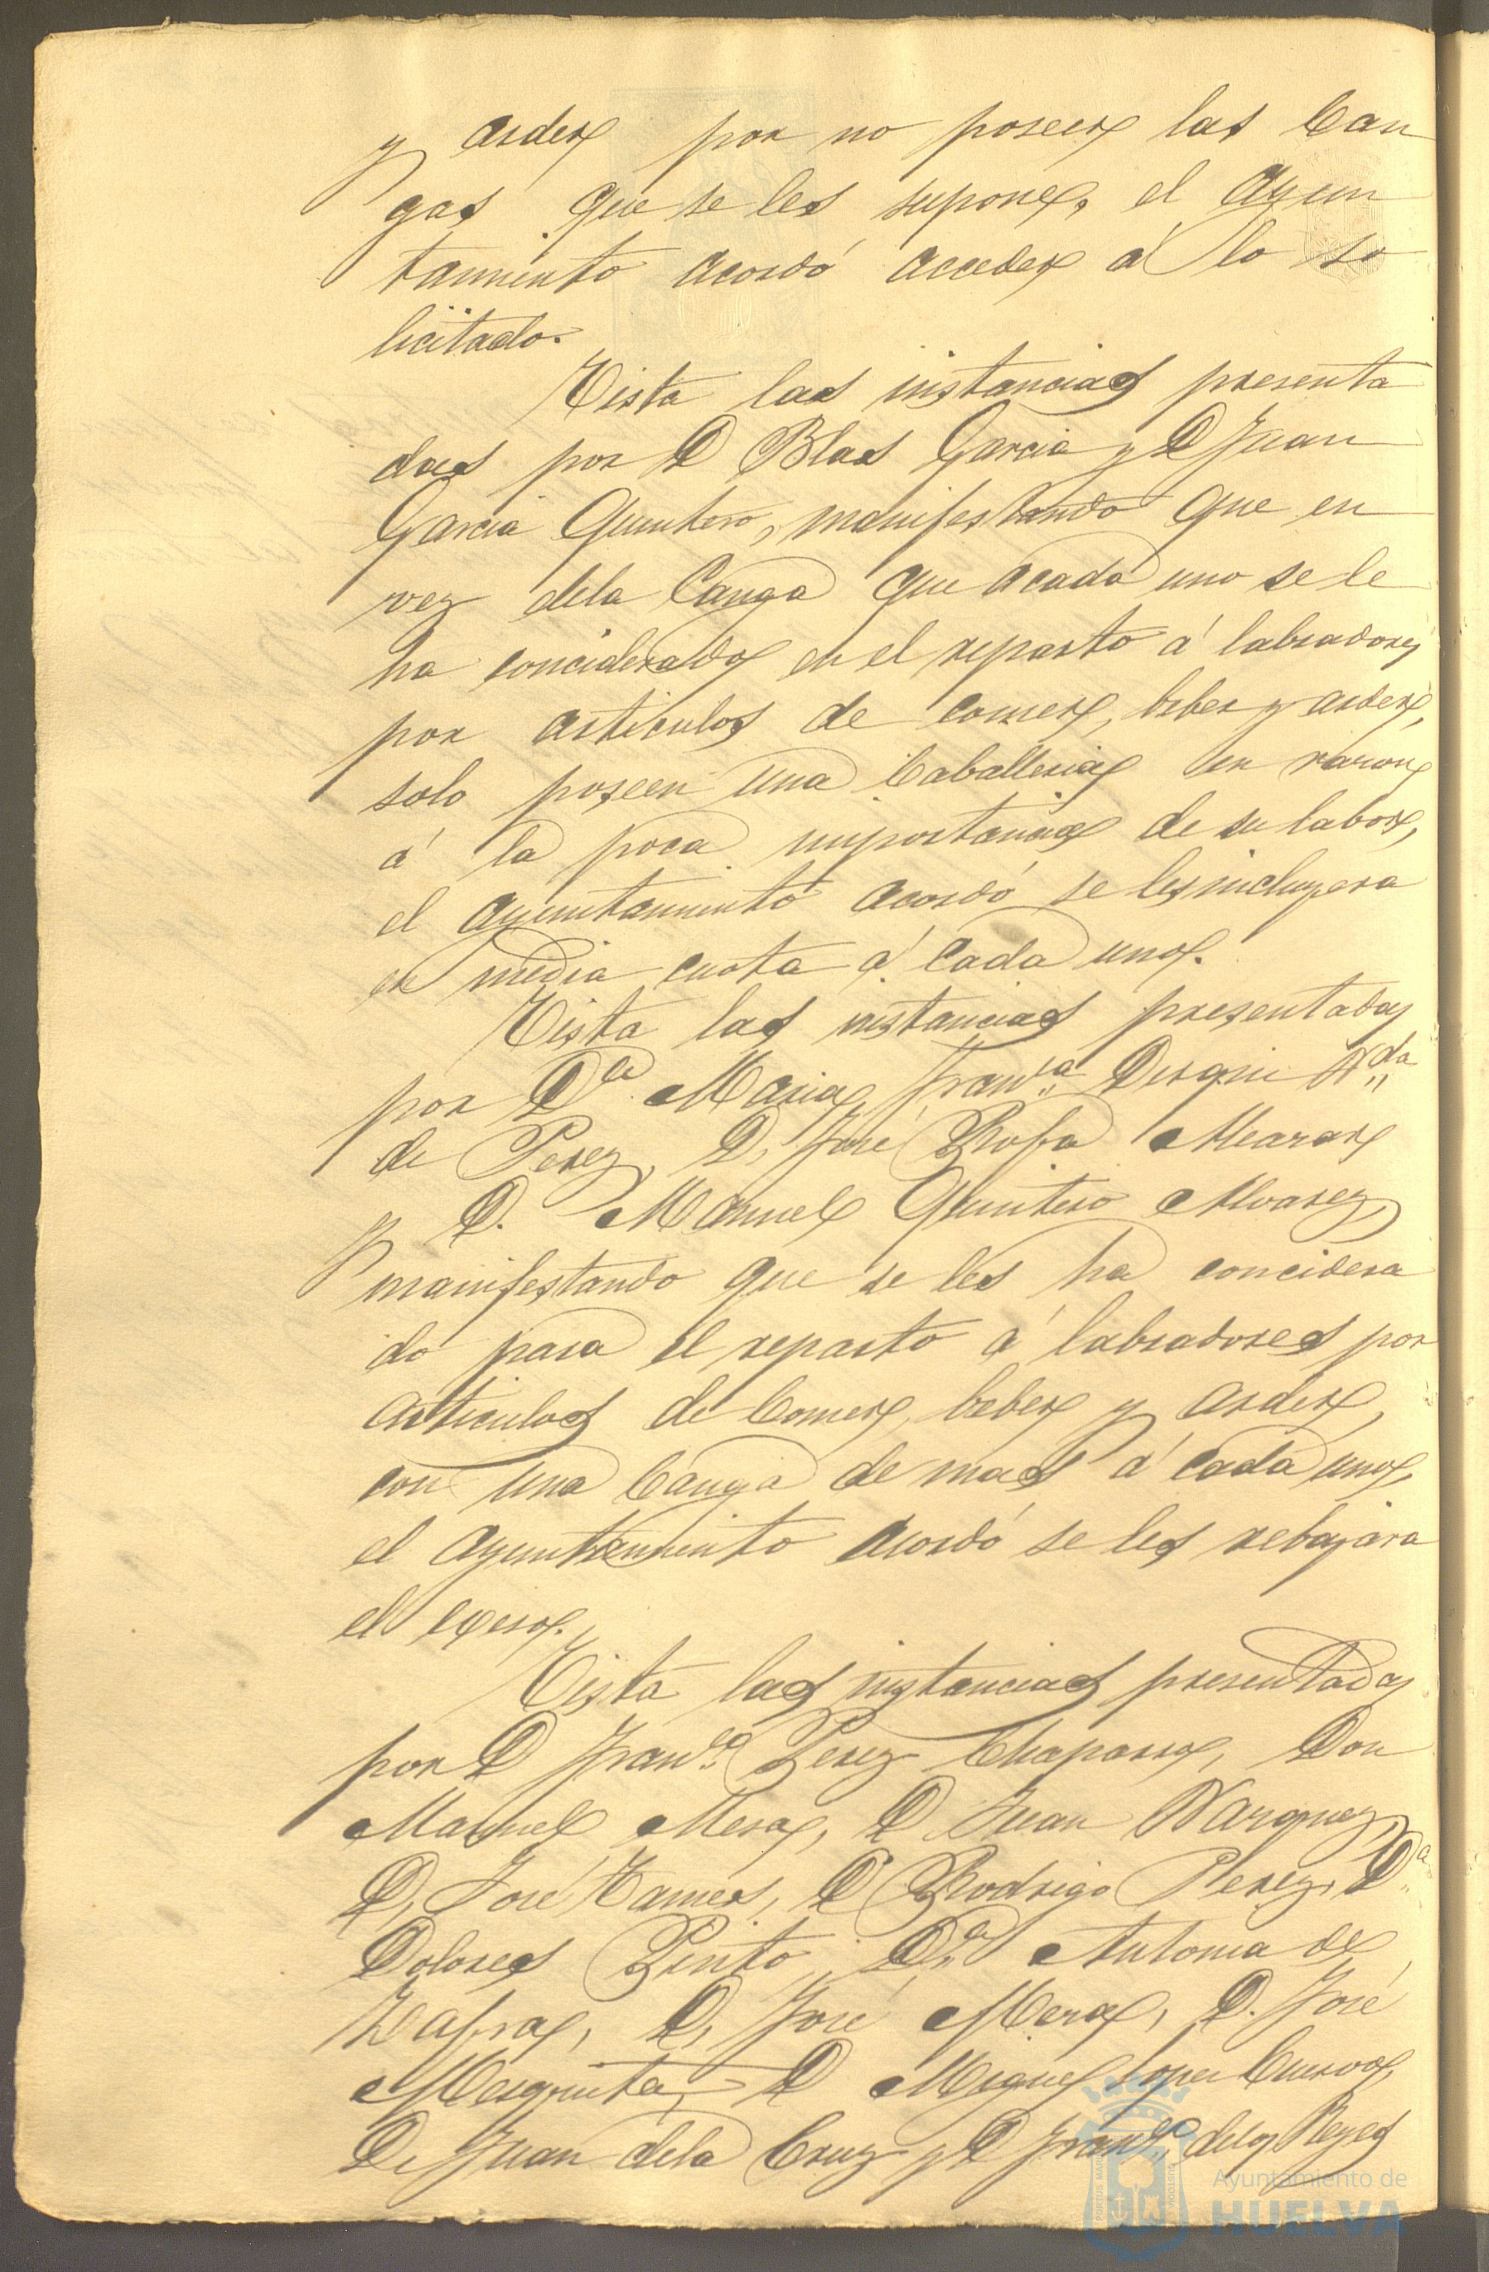 y arder por no poseer las Can
gas que se les supone, el ayun
tamiento acordó acceder á lo so
licitado.
Vista las instancias presenta
das por D Blas Garcia y D Juan
Garcia Quintero, manifestando que en
vez dela Canga que acada uno se le
ha conciderado en el reparto á labradores
por articulos de comer, beber y arder,
solo poseen una Caballeria en razon
á la poca importancia de su labor,
el ayuntamiento acordó se les incluyera
en media cuota á cada uno.
Vista las instancias presentadas
por Dª Maria Franᶜᵃ Vᵈᵃ
de Perez, D. José Rofa
y D. Manuel Quintero Alvarez,
manifestando que se les ha concidera
do para el reparto á labradores por
articulos de Comer, beber y arder,
con una Canga de mas á cada uno,
el ayuntamiento acordó se les rebajara
el exeso.
Vista las instancias presentadas
por D Franᶜᵒ Perez Chaparro, Don
Manuel Mora, D. Juan Vazquez,
D. José Tamer, D Rodrigo Perez, Dª
Dolores Pinto, Dª Antonia de
Zafra, D. José Mora, D. José
Mezquita, D Miguel Lopez Cuervo,
D. Juan dela Cruz y D Franᶜᵒ delos Reyes
Ayuntamiento de
HUELVA